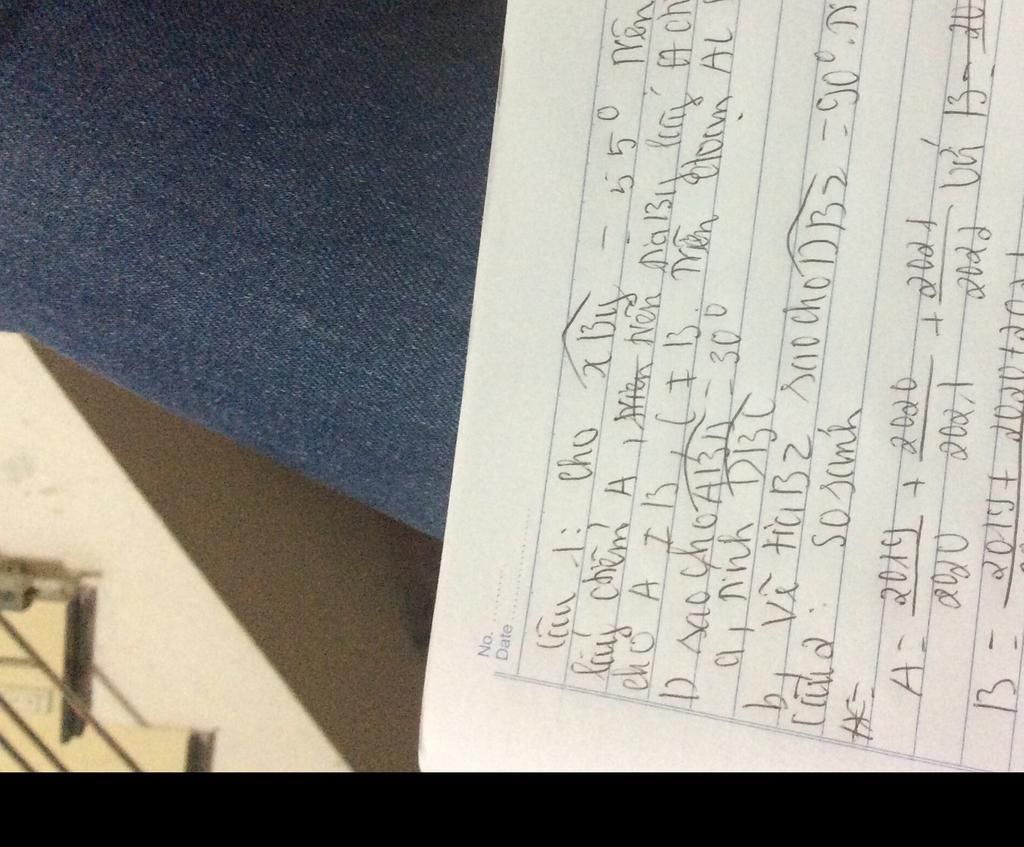 No.
Date
Câu 1: cho xBy = 55° Trên
lấy điểm A, trên tia By lấy
cho A ≠ B, C ≠ B. Trên đoạn AC
D sao cho ABD = 30°
a, tính DBC
b, Vẽ tia Bz sao cho DBz = 90°.
Câu 2: So sánh
A = 2019/2020 + 2020/2021 + 2021/2022 và B = 20
B = 2019 + 2020 + 2021